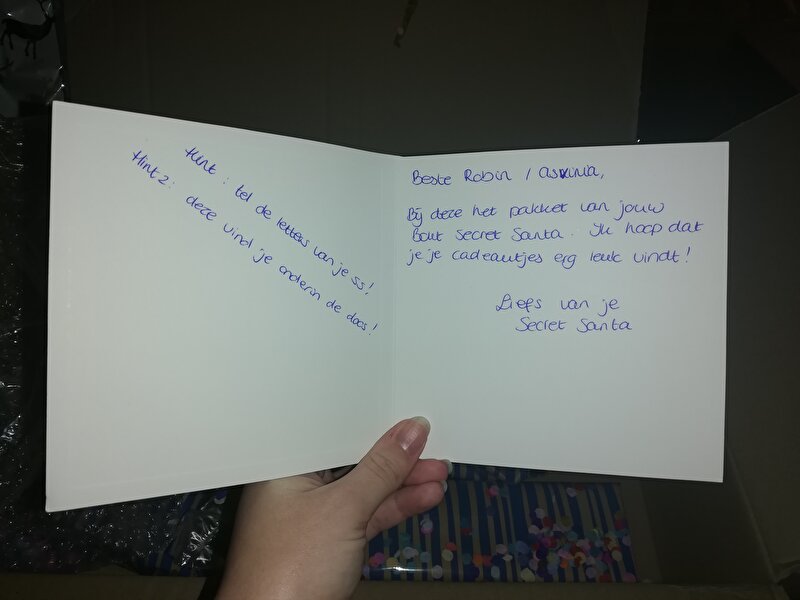 Hint : tel de letters van je ss!
Hint 2: deze vind je onderin de doos!
Beste Robin / asvinia,
Bij deze het pakket van jouw
bout Secret Santa. Ik hoop dat
je je cadeautjes erg leuk vindt!
Liefs van je
Secret Santa